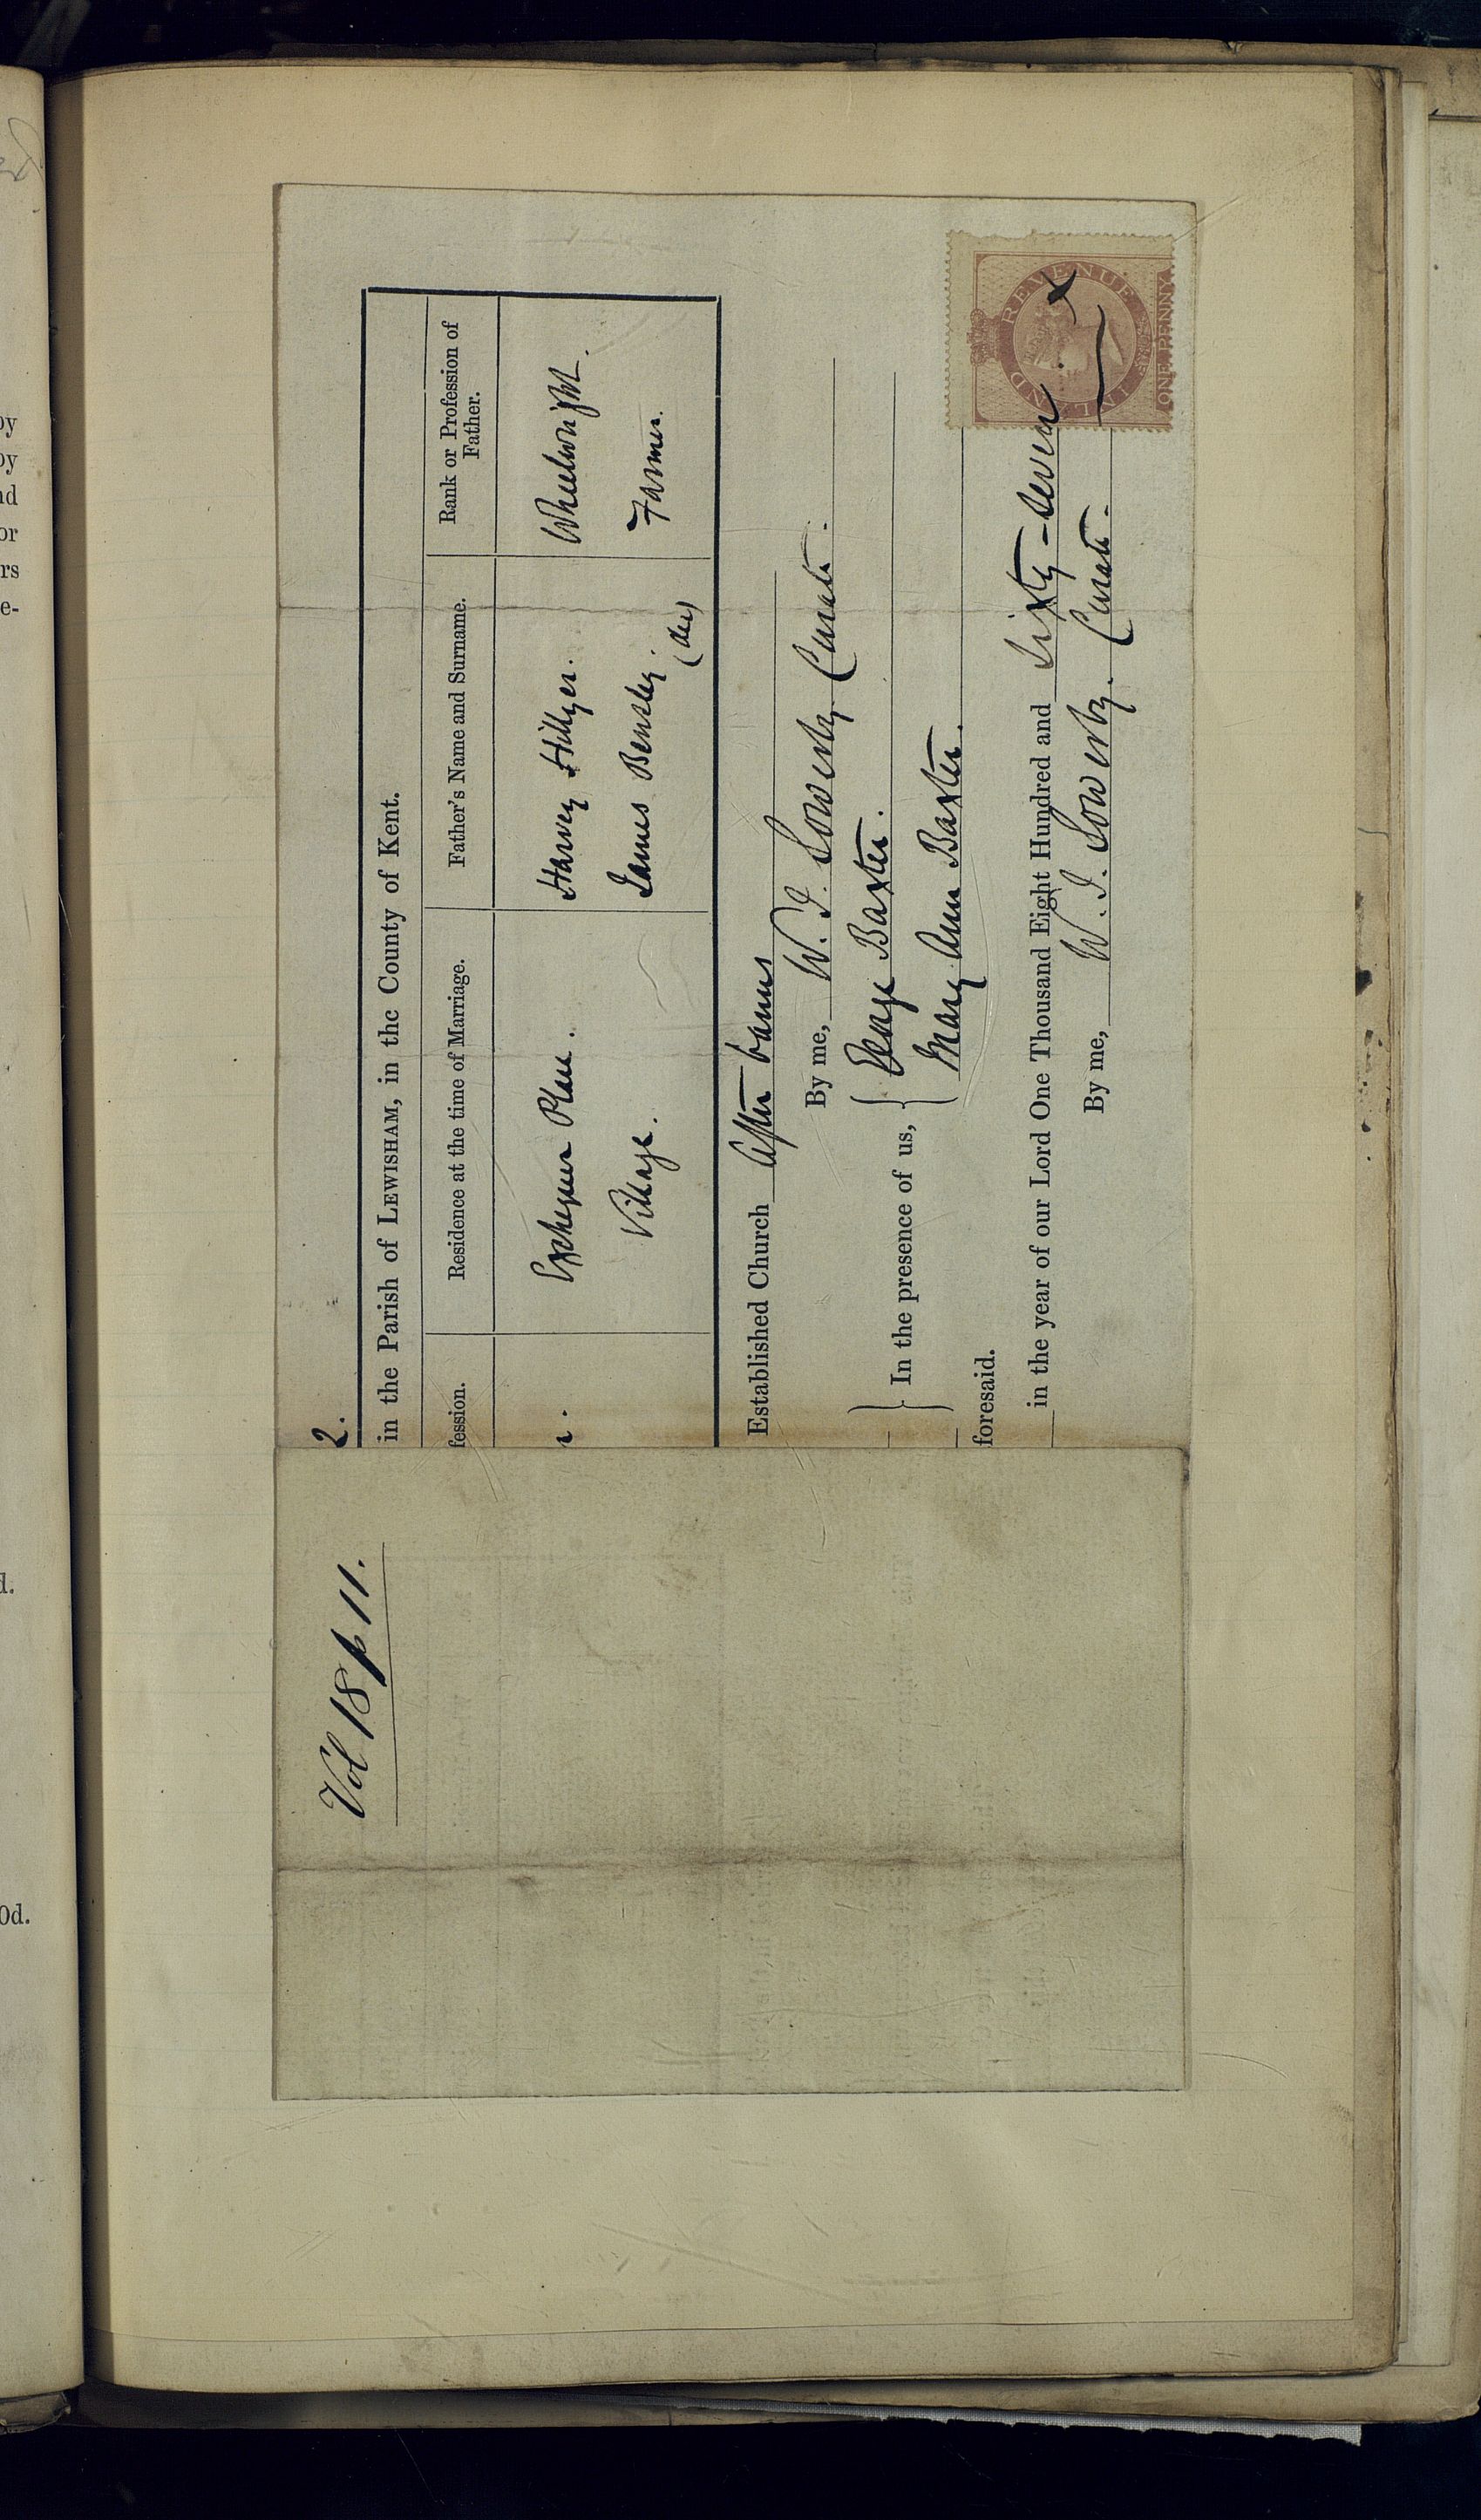 Vol 18 p 11.
2.
in the Parish of LEWISHAM, in the County of Kent.
fession.
Residence at the time of Marriage.
Father's Name and Surname.
Rank or Profession of
Father.
r.
Exchequer Place.
Harvey Hillyer.
Wheelwright.
Village.
James Bensley.
(dec)
Farmer.
Established Church after banns
By me, W. J. Sowerby Curate.
In the presence of us,
George Baxter.
Mary Ann Baxter.
foresaid.
in the year of our Lord One Thousand Eight Hundred and Sixty-seven.
By me, W. J. Sowerby. Curate.
INLAND REVENUE
ONE PENNY
by
by
nd
or
rs
e-
d.
0d.